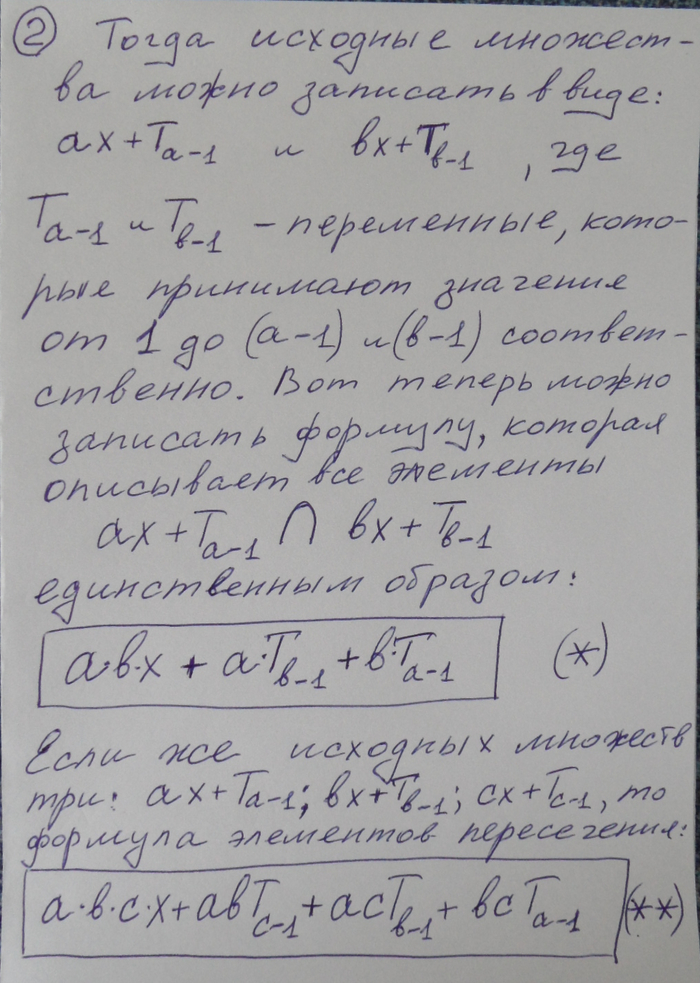 ② Тогда исходные множест-
ва можно записать в виде:
ax + Tₐ₋₁ и вx + Tв₋₁, где
Tₐ₋₁ и Tв₋₁ – переменные, кото-
рые принимают значения
от 1 до (a-1) и (в-1) соответ-
ственно. Вот теперь можно
записать формулу, которая
описывает все элементы
ax + Tₐ₋₁ ∩ вx + Tв₋₁
единственным образом:
a·в·x + a·Tв₋₁ + в·Tₐ₋₁ (*)
Если же исходных множеств
три: ax + Tₐ₋₁; вx + Tв₋₁; cx + Tc₋₁, то
формула элементов пересечения:
a·в·c·x + aвTc₋₁ + acTв₋₁ + вcTₐ₋₁ (**)